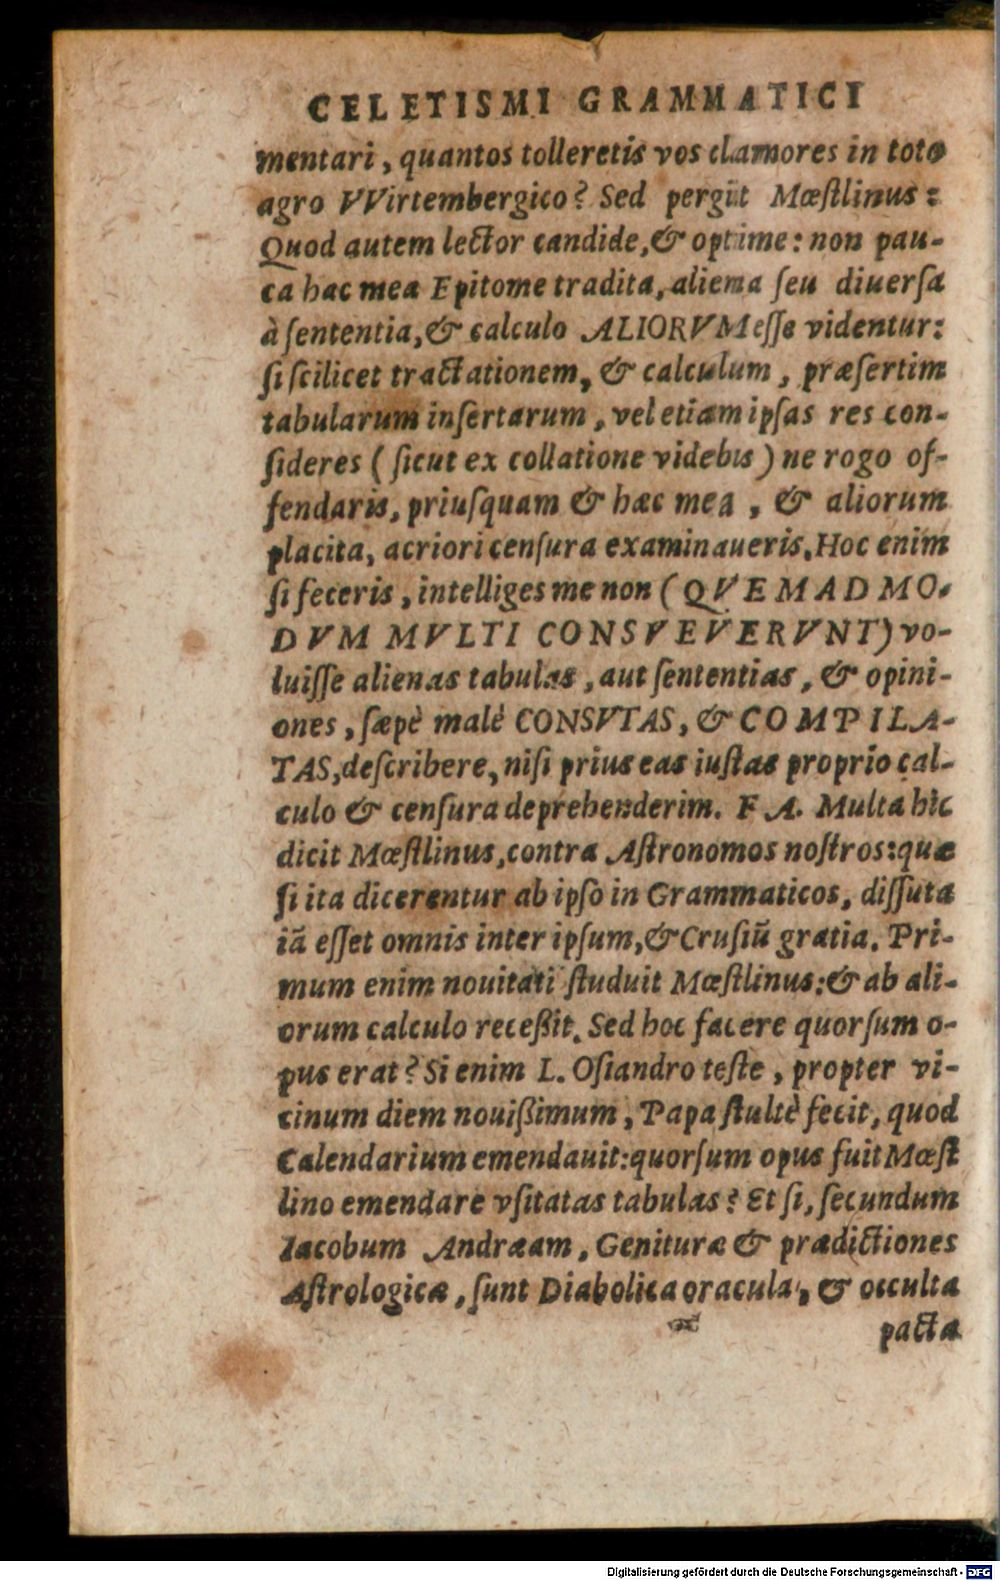 CELETISMI GRAMMATICI
mentari, quantos tolleretis vos clamores in toto
agro VVirtembergico? Sed pergit Mœſtlinus:
Quod autem lector candide, & optime: non pau-
ca hac mea Epitome tradita, aliena ſeu diuerſa
à ſententia, & calculo ALIORVM eſſe videntur:
ſi ſcilicet tractationem, & calculum, præſertim
tabularum inſertarum, vel etiam ipſas res con-
ſideres (ſicut ex collatione videbis) ne rogo of-
fendaris, priuſquam & hæc mea, & aliorum
placita, acriori cenſura examinaueris. Hoc enim
ſi feceris, intelliges me non (QVEMADMO-
DVM MVLTI CONSVEVERVNT) vo-
luiſſe alienas tabulas, aut ſententias, & opini-
ones, ſæpè malè CONSVTAS, & COMPILA-
TAS, deſcribere, niſi prius eas iuſtas proprio cal-
culo & cenſura deprehenderim. F A. Multa hìc
dicit Mœſtlinus, contra Aſtronomos noſtros: quæ
ſi ita dicerentur ab ipſo in Grammaticos, diſſuta
iā eſſet omnis inter ipſum, & Cruſiū gratia. Pri-
mum enim nouitati ſtuduit Mœſtlinus: & ab ali-
orum calculo receßit. Sed hoc facere quorſum o-
pus erat? Si enim L. Oſiandro teſte, propter vi-
cinum diem nouißimum, Papa ſtultè fecit, quod
Calendarium emendauit: quorſum opus fuit Mœſt
lino emendare vſitatas tabulas? Et ſi, ſecundum
Iacobum Andræam, Genituræ & prædictiones
Aſtrologicæ, ſunt Diabolica oracula, & occulta
pacta
Digitalisierung gefördert durch die Deutsche Forschungsgemeinschaft - DFG